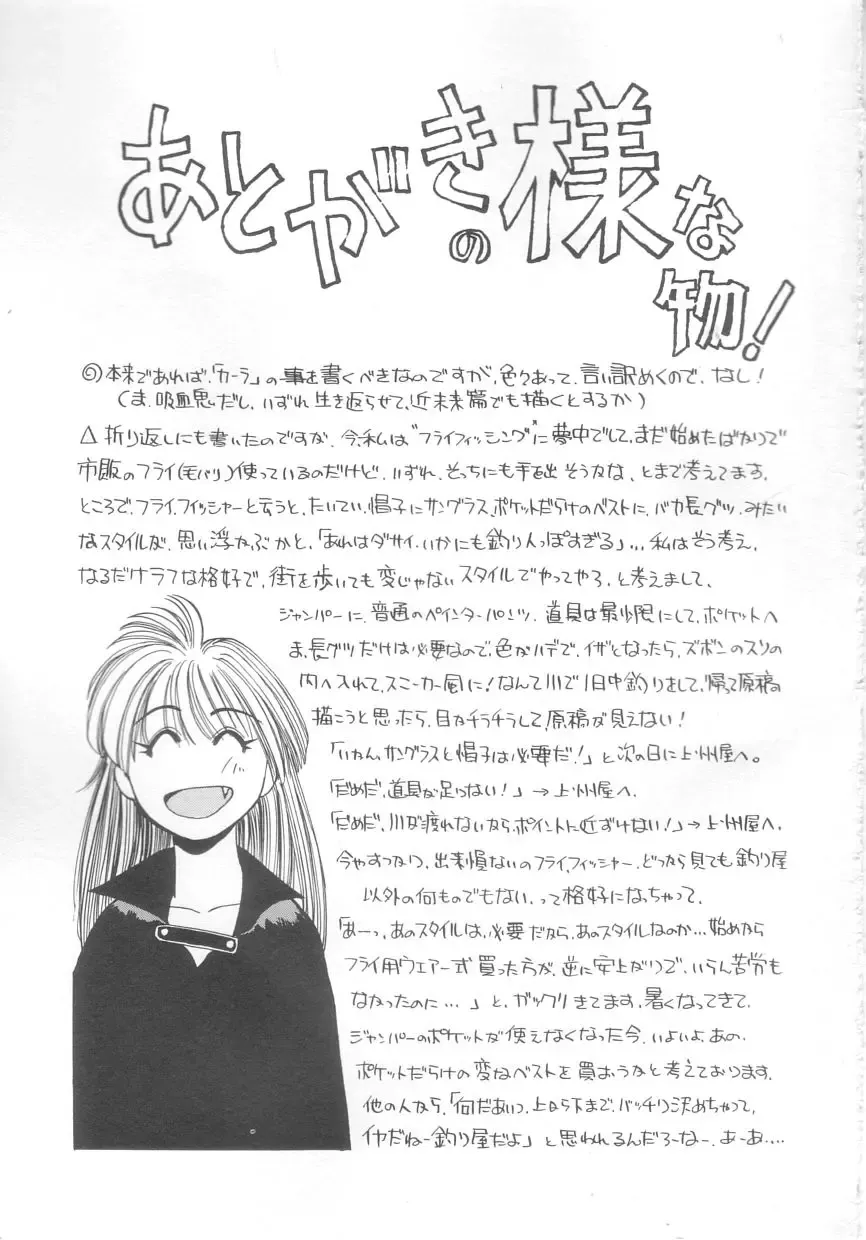 あとがきの様な
物!
◎本来であれば、「カーラ」の事を書くべきなのですが、色々あって、言い訳めくので、なし!
(ま、吸血鬼だし、いずれ生き返らせて、近未来篇でも描くとするか)
△折り返しにも書いたのですが、今、私は“フライフィッシング”に夢中でして、まだ始めたばかりで
市販のフライ(毛バリ)使っているのだけど、いずれ、そっちにも手を出そうかな、とまで考えてます。
ところで、フライ、フィッシャーと云うと、たいてい、帽子にサングラス、ポケットだらけのベストに、バカ長グツ、みたい
なスタイルが、思い浮かぶかと、「あれはダサイ、いかにも釣り人っぽすぎる」…私はそう考え、
なるだけラフな格好で、街を歩いても変じゃないスタイルでやってやろ、と考えまして、
ジャンパーに、普通のペインターパンツ、道具は最少限にして、ポケットへ
ま、長グツだけは必要なので、色がハデで、イザとなったら、ズボンのスソの
内へ入れて、スニーカー風に!なんて川で1日中釣りまして、帰って原稿
描こうと思ったら、目がチラチラして原稿が見えない!
「いかん、サングラスと帽子は必要だ!」と次の日に上州屋へ。
「だめだ、道具が足らない!」→上州屋へ、
「だめだ、川が渡れないなら、ポイントに近ずけない!」→上州屋へ、
今やすっかり、出来損ないのフライ、フィッシャー、どっから見ても釣り屋
以外の何ものでもない、って格好になっちゃって、
「あーっ、あのスタイルは、必要だから、あのスタイルなのか…始めから
フライ用ウェアー式買った方が、逆に安上がりで、いらん苦労も
なかったのに…」と、ガックリきてます、暑くなってきて、
ジャンパーのポケットが使えなくなった今、いよいよ、あの、
ポケットだらけの変なベストを買おうかと考えております、
他の人なら、「何だあいつ、上から下まで、バッチリ決めちゃって、
イヤだねー釣り屋だよ」と思われるんだろーなー、あーあ….